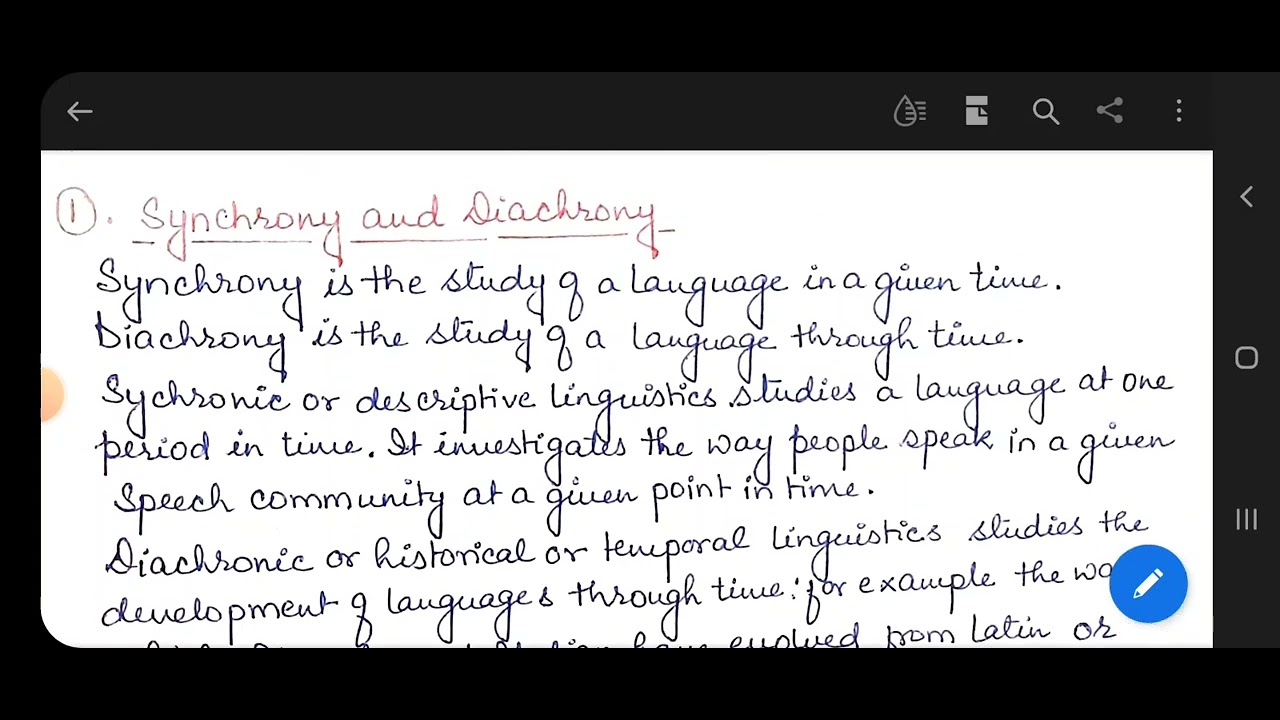 ① . Synchrony and Diachrony
Synchrony is the study of a language in a given time.
Diachrony is the study of a language through time.
Sychronic or descriptive linguistics studies a language at one
period in time. It investigates the way people speak in a given
speech community at a given point in time.
Diachronic or historical or temporal linguistics studies the
development of languages through time: for example the
have evolved from Latin or